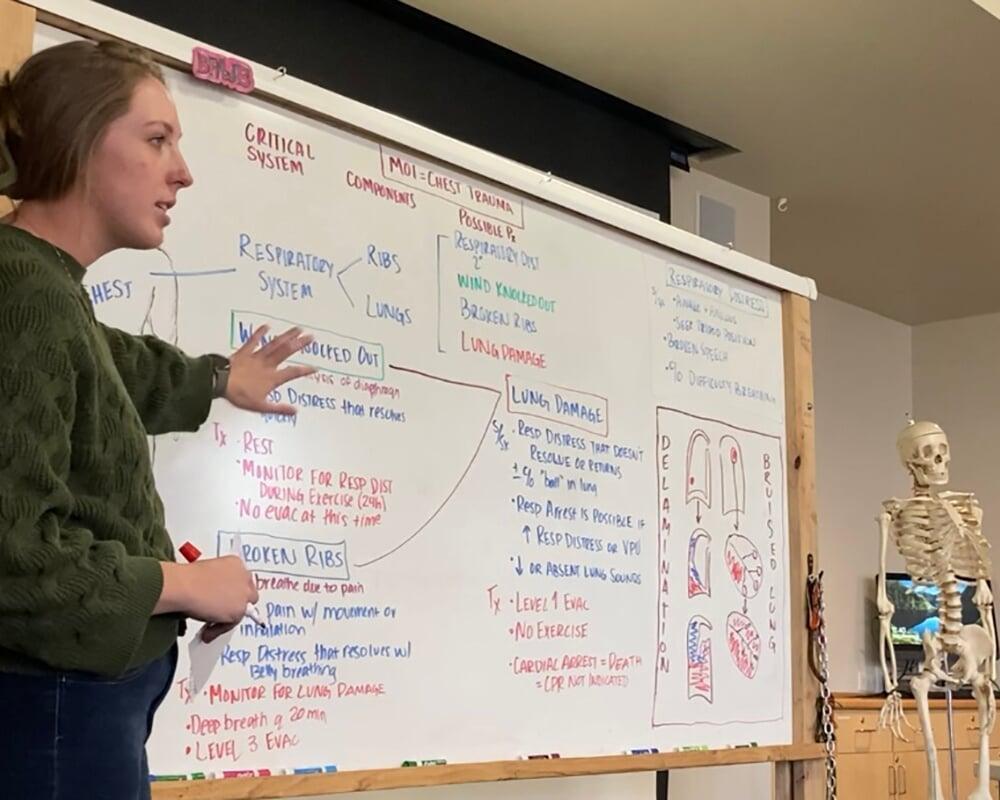 CRITICAL
SYSTEM
COMPONENTS
MOI = CHEST TRAUMA
POSSIBLE Px
CHEST
RESPIRATORY
SYSTEM
RIBS
LUNGS
RESPIRATORY DIST
2°
WIND KNOCKED OUT
BROKEN RIBS
LUNG DAMAGE
KNOCKED OUT
of diaphragm
DISTRESS that resolves
Tx • REST
• MONITOR FOR RESP DIST
DURING Exercise (24h)
• No evac at this time
BROKEN RIBS
breathe due to pain
Pain w/ movement or
inhalation
Resp Distress that resolves w/
Belly breathing
Tx • MONITOR FOR LUNG DAMAGE
• Deep breath q 20 min
• LEVEL 3 EVAC
LUNG DAMAGE
S/Sx • RESP DISTRESS THAT DOESN'T
RESOLVE OR RETURNS
± c/o "ball" in lung
• Resp Arrest is Possible if
↑ RESP DISTRESS OR VPU
• ↓ OR ABSENT LUNG SOUNDS
Tx • LEVEL 1 EVAC
• NO EXERCISE
• CARDIAC ARREST = DEATH
= CPR NOT INDICATED
RESPIRATORY DISTRESS
S/Sx • AWAKE + ANXIOUS
• SEEK TRIPOD POSITION
• BROKEN SPEECH
• c/o DIFFICULTY BREATHING
DELAMINATION
BRUISED LUNG